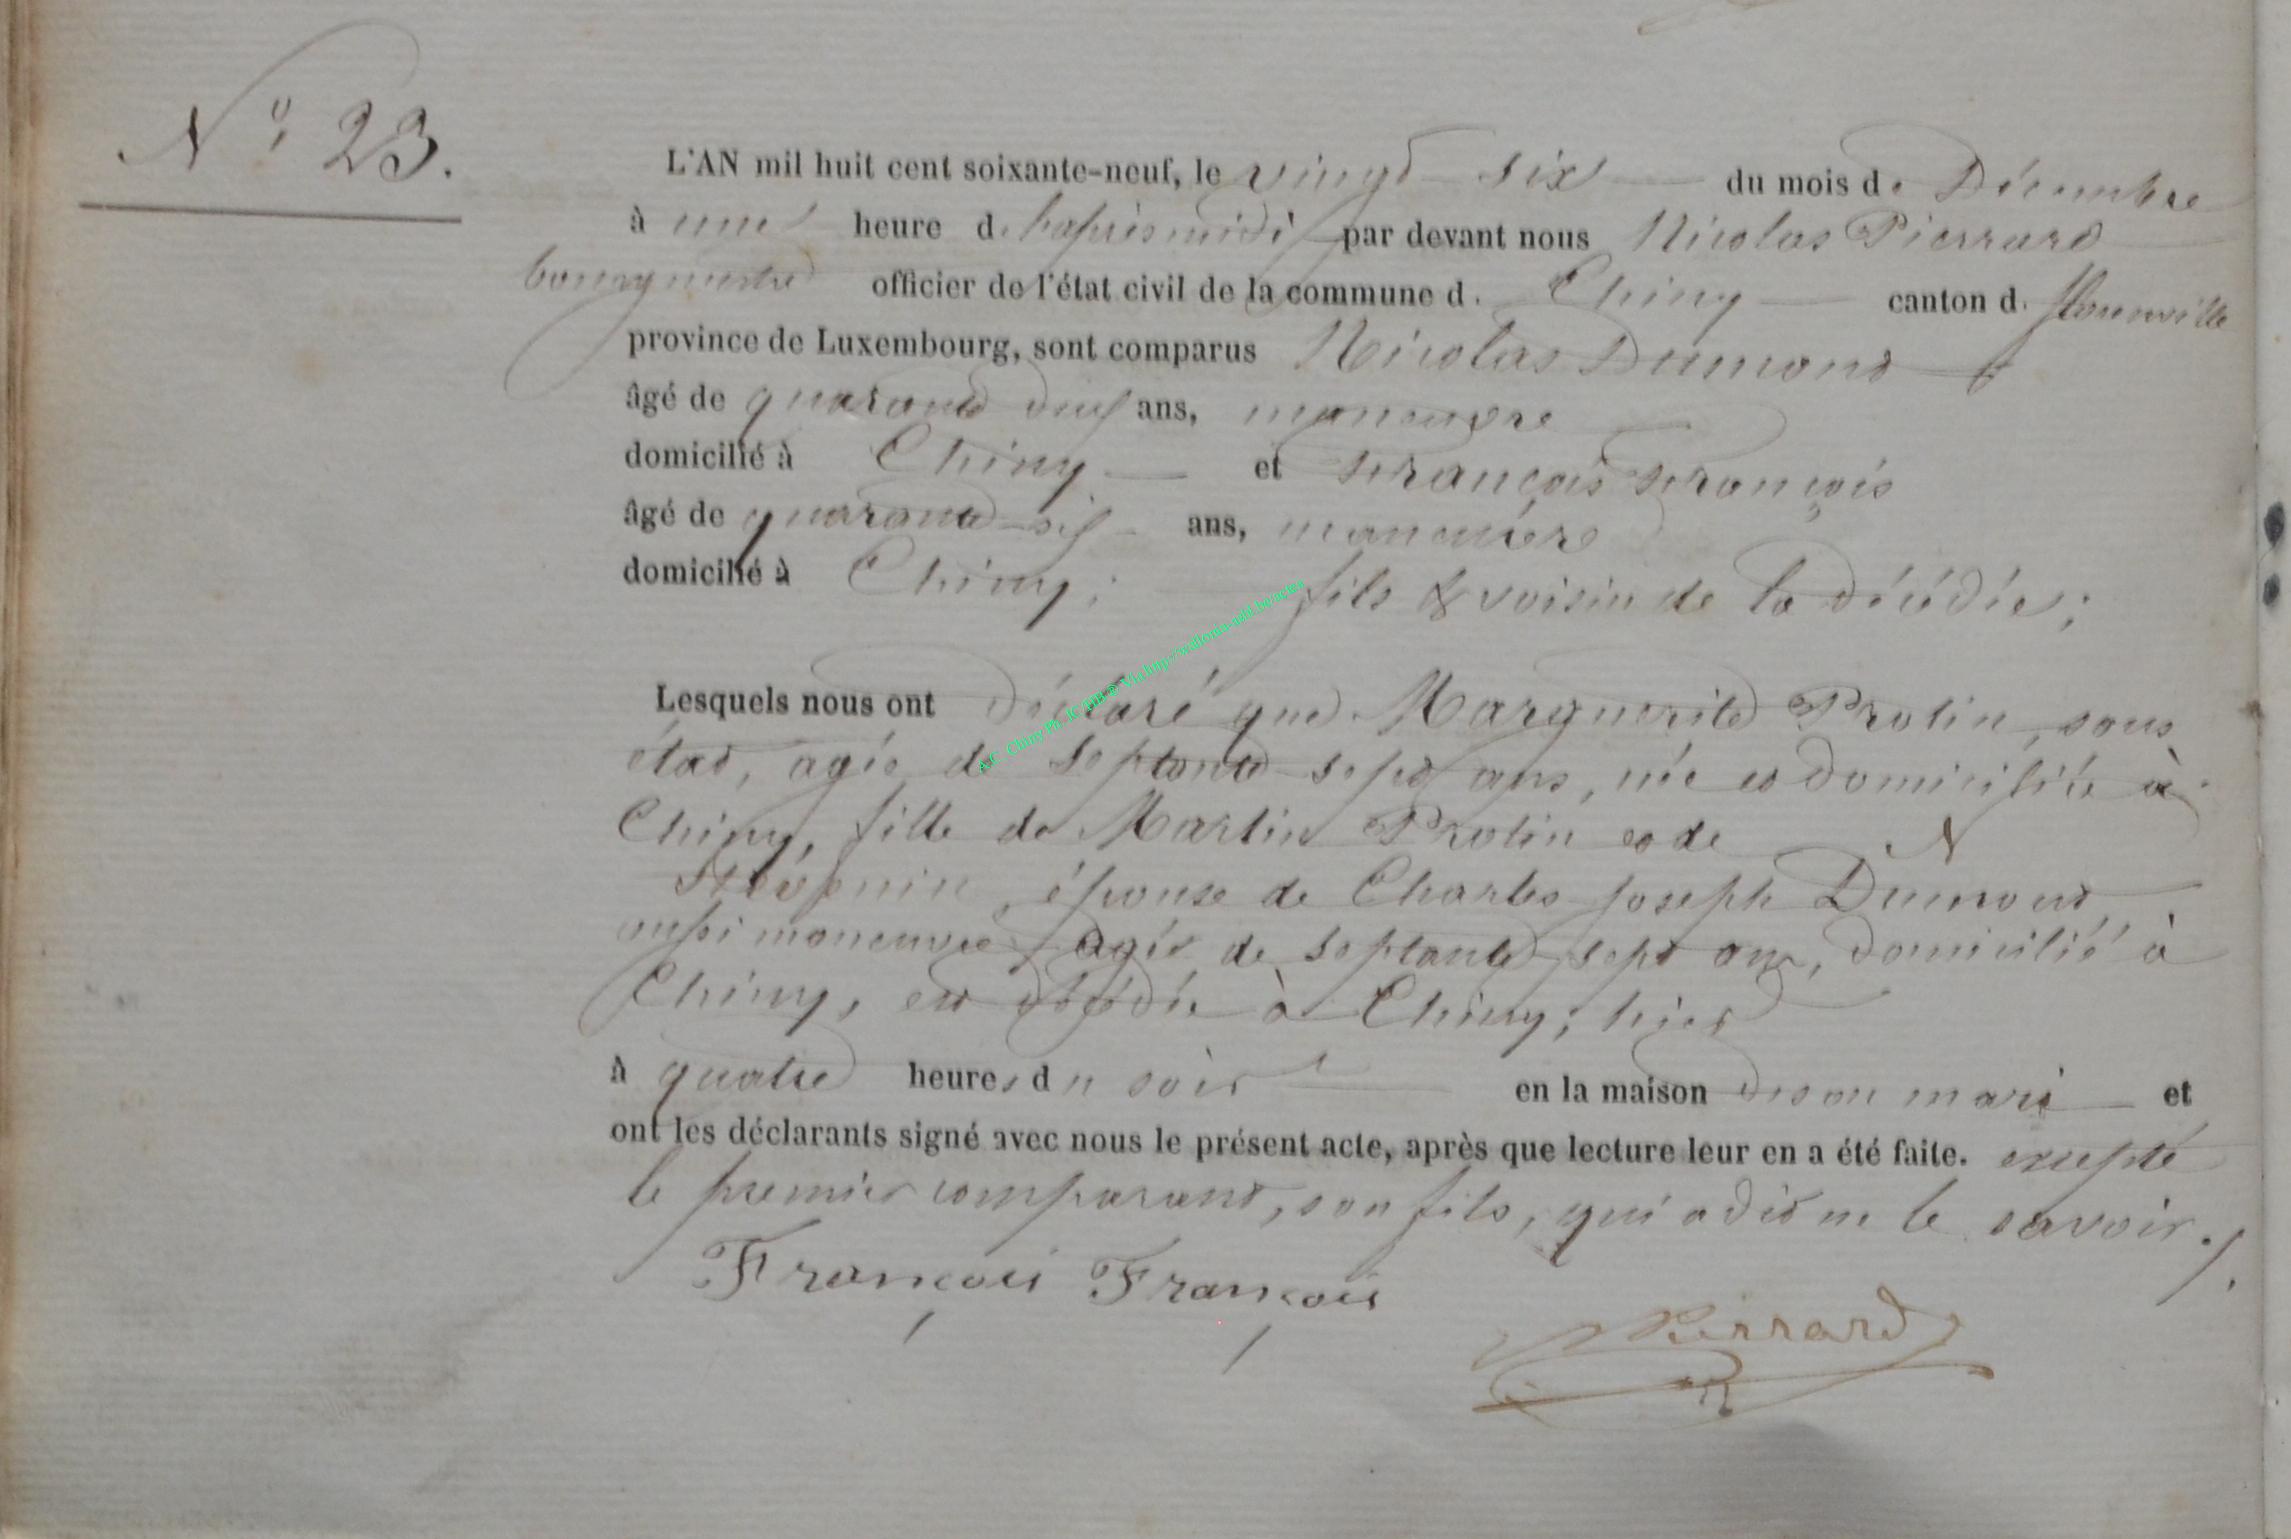 N° 23.
L'AN mil huit cent soixante-neuf, le vingt six du mois de Décembre
à une heure de l'après midi par devant nous Nicolas Pierrard
bourgmestre officier de l'état civil de la commune d. Chiny canton d. Florenville
province de Luxembourg, sont comparus Nicolas Dumont
âgé de quarante deux ans, manœuvre
domicilié à Chiny et François François
âgé de quarante six ans, manœuvre
domicilié à Chiny; fils & voisin de la décédée;
Lesquels nous ont déclaré que Marguerite Protin, sans
état, agée de septante sept ans, née et domiciliée à
Chiny, fille de Martin Protin et de N
épouse de Charles Joseph Dumont,
aussi manœuvre, agé de septante sept ans, domicilié à
Chiny, est décédée à Chiny, hier
à quatre heures du soir en la maison de son mari et
ont les déclarants signé avec nous le présent acte, après que lecture leur en a été faite. excepté
le premier comparant, son fils, qui a dit ne le savoir./.
François François
Pierrard
A.C. Chiny Ph. JC/HB © Via http://wallonia-asbl.be/actes